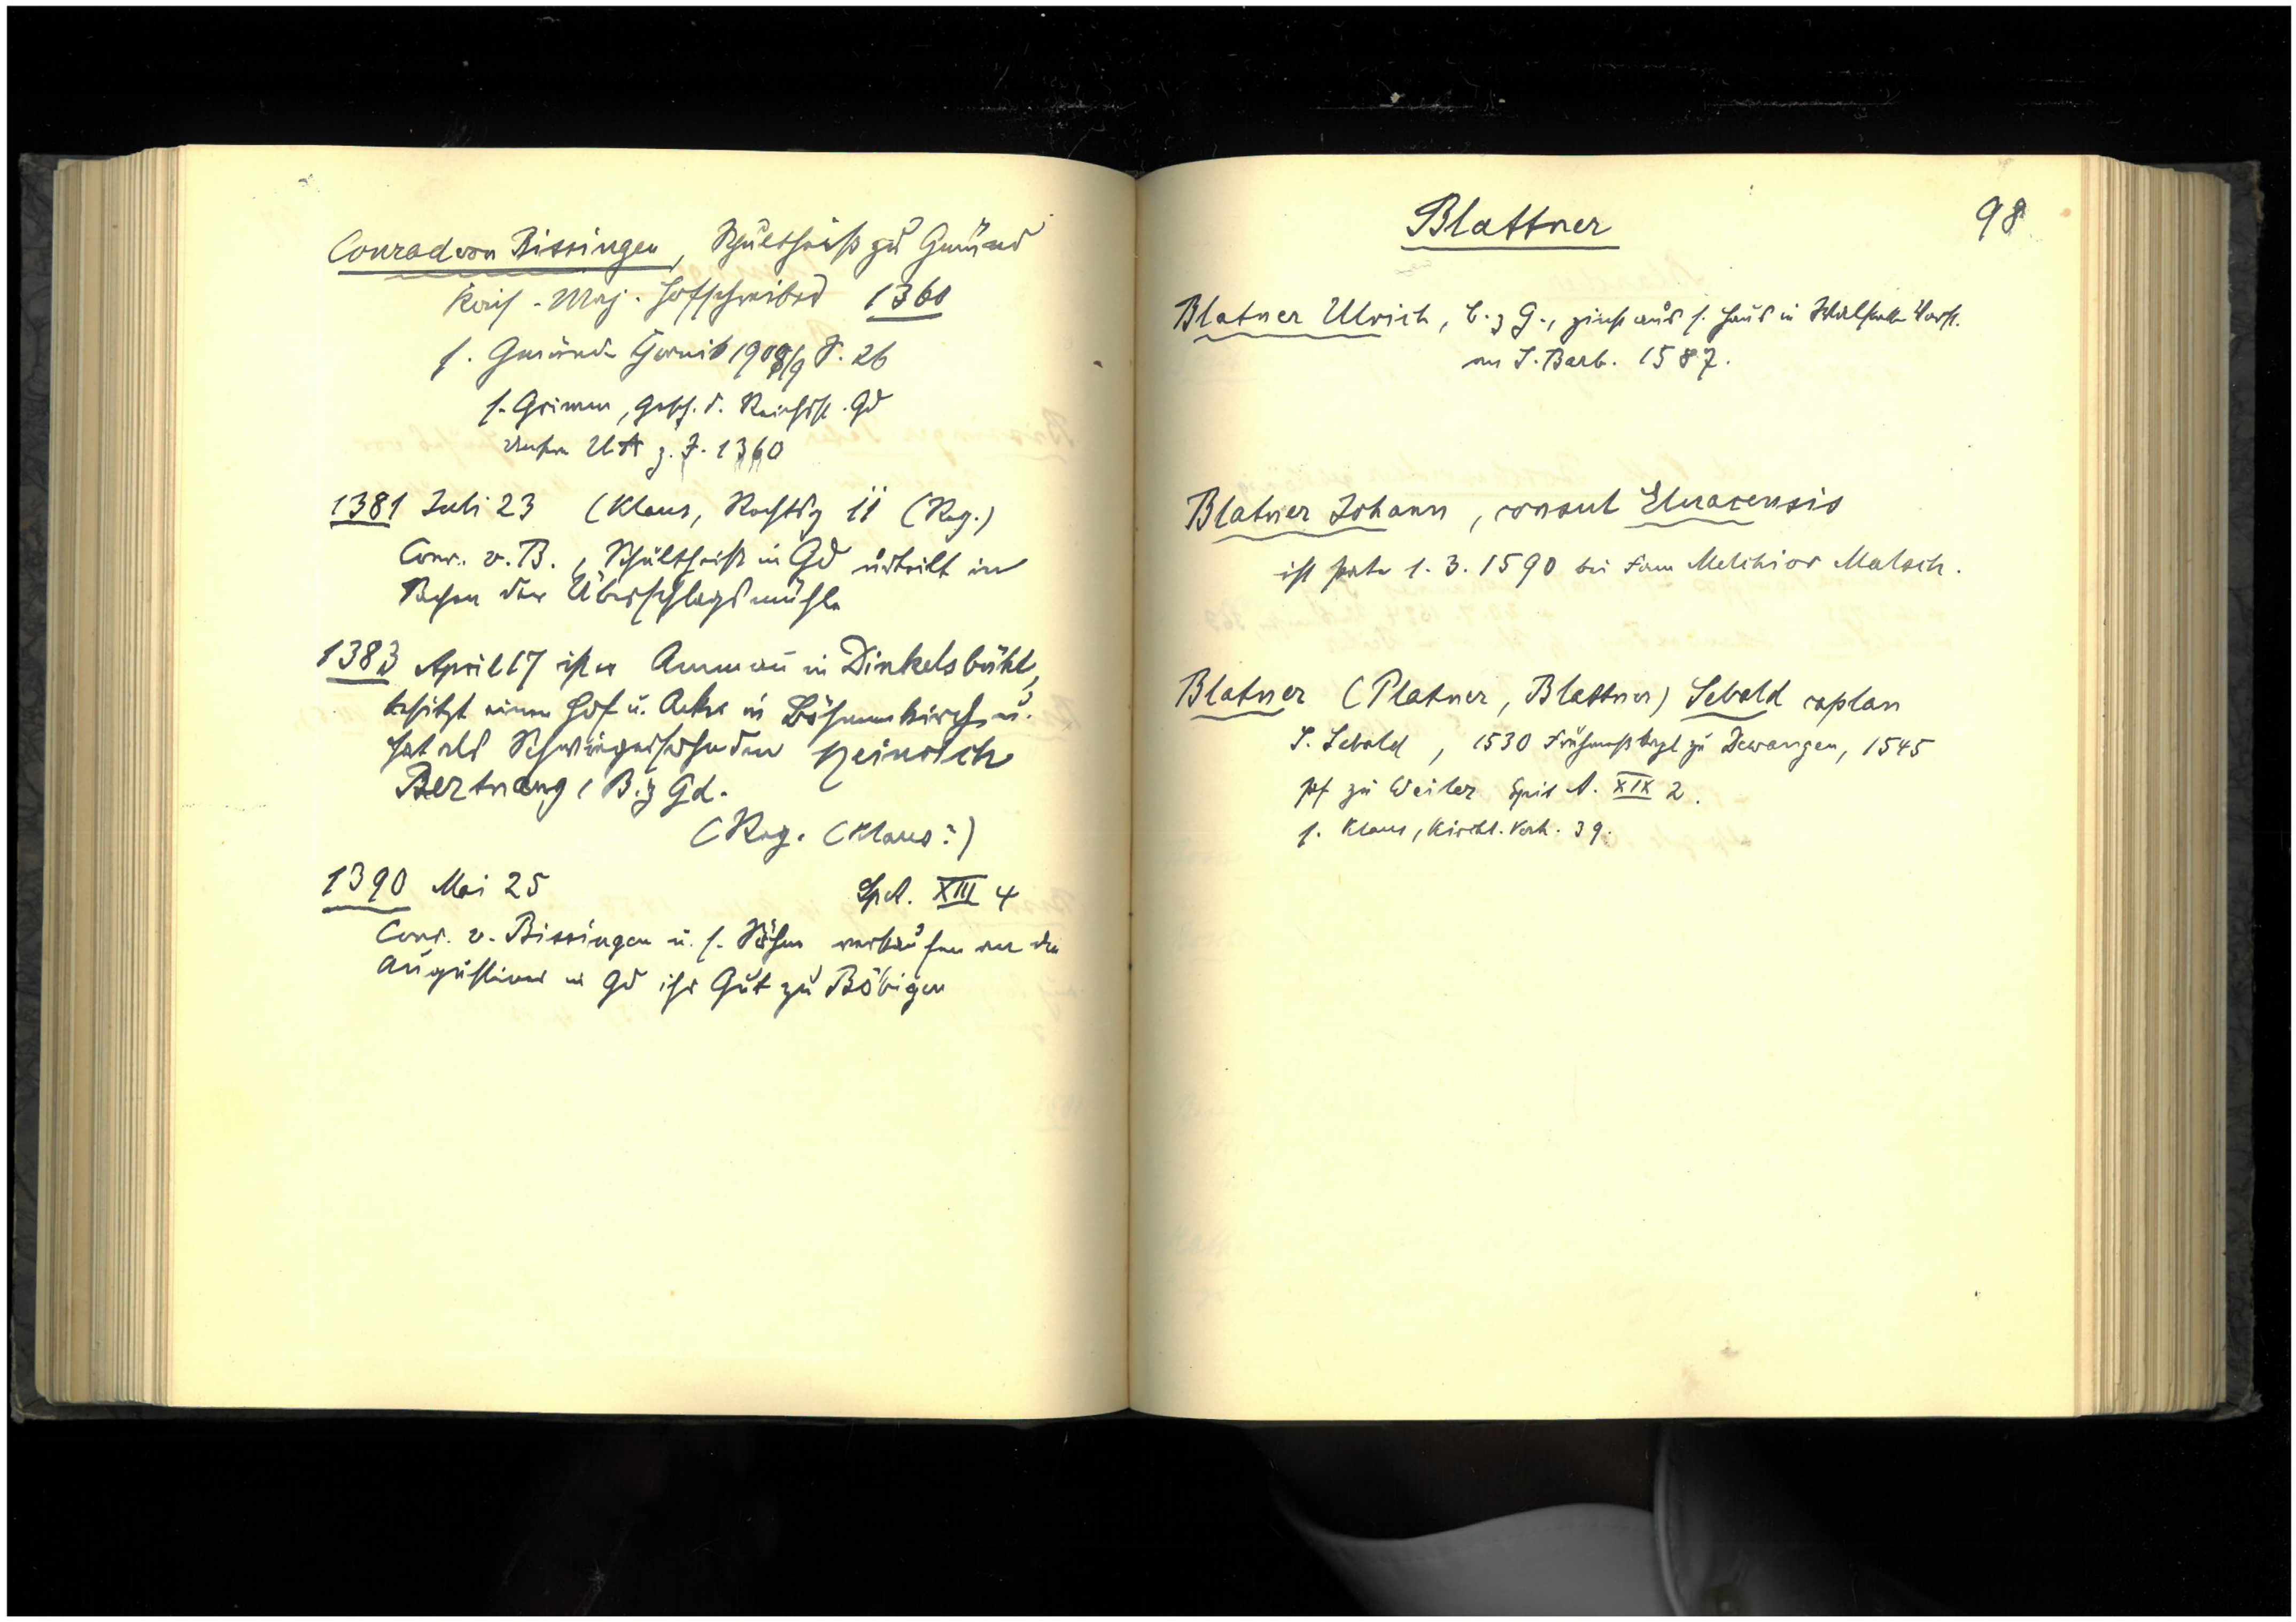 Conrad von Bissingen, Schultheiß zu Gmünd
Kais. Maj. Hofschreiber 1360
s. Gmünder Chronik 1908/9 S. 26
s. Grimm, Gesch. d. Reichsst. Gd
UA z. J. 1360
1381 Juli 23 (Klaus, Rechtsg 11 (Reg.)
Conr. v. B., Schultheiß in Gd urteilt in
Sachen der Überschlagsmühle
1383 April 17 ist er Amman in Dinkelsbühl,
besitzt einen Hof u. Äcker in Böhmenkirch u.
hat als Schwiegersohn den Heinrich
Bertnang, B. z Gd.
(Reg. (Klaus?)
1390 Mai 25 Sp.A. XIII 4
Conr. v. Bissingen u. s. Söhne verkaufen an die
Augustiner in Gd ihr Gut zu Böbingen
Blattner 98
Blatner Ulrich, B. z G., zinst aus s. Haus in Vorst.
an S. Barb. 1587.
Blatner Johann, consul Elvacensis
ist Pate 1. 3. 1590 bei Fam Melchior Malsch.
Blatner (Platner, Blattner) Sebold caplan
S. Sebold, 1530 Frühmeßkapl zu Dewangen, 1545
Pf zu Weiler Spit A. XIX 2.
s. Klaus, Kirchl. Verh. 39.